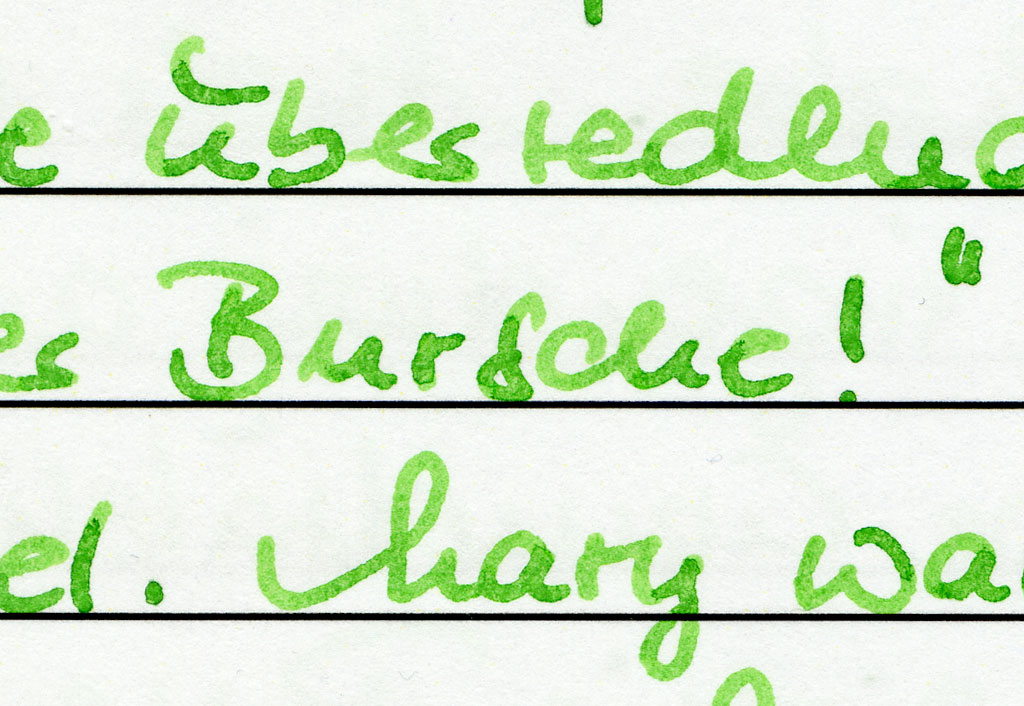 e überredend
er Bursche!“
el. Mary wa